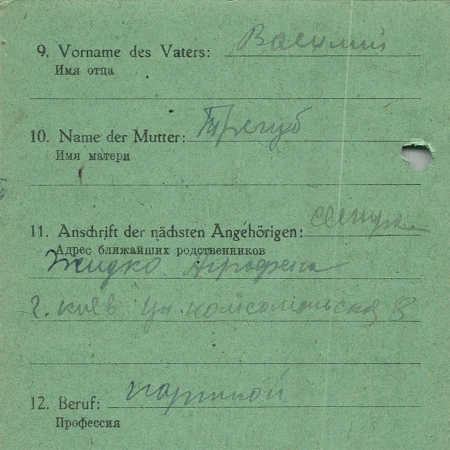 9. Vorname des Vaters: Василий
Имя отца
10. Name der Mutter: Трегуб
Имя матери
11. Anschrift der nächsten Angehörigen:
Адрес ближайших родственников
Жидко Агрофена
г. киев ул. комсомольская 8
12. Beruf: партной
Профессия